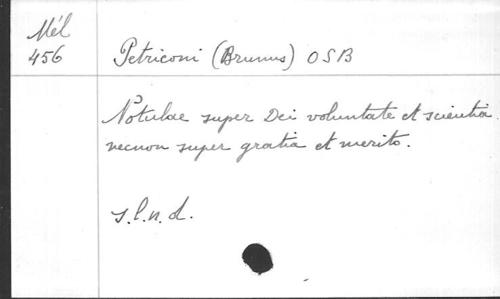 Mél
456
Petriconi (Brunus) OSB
Notulae super Dei voluntate et scientia
necnon super gratia et merito.
s.l.n.d.